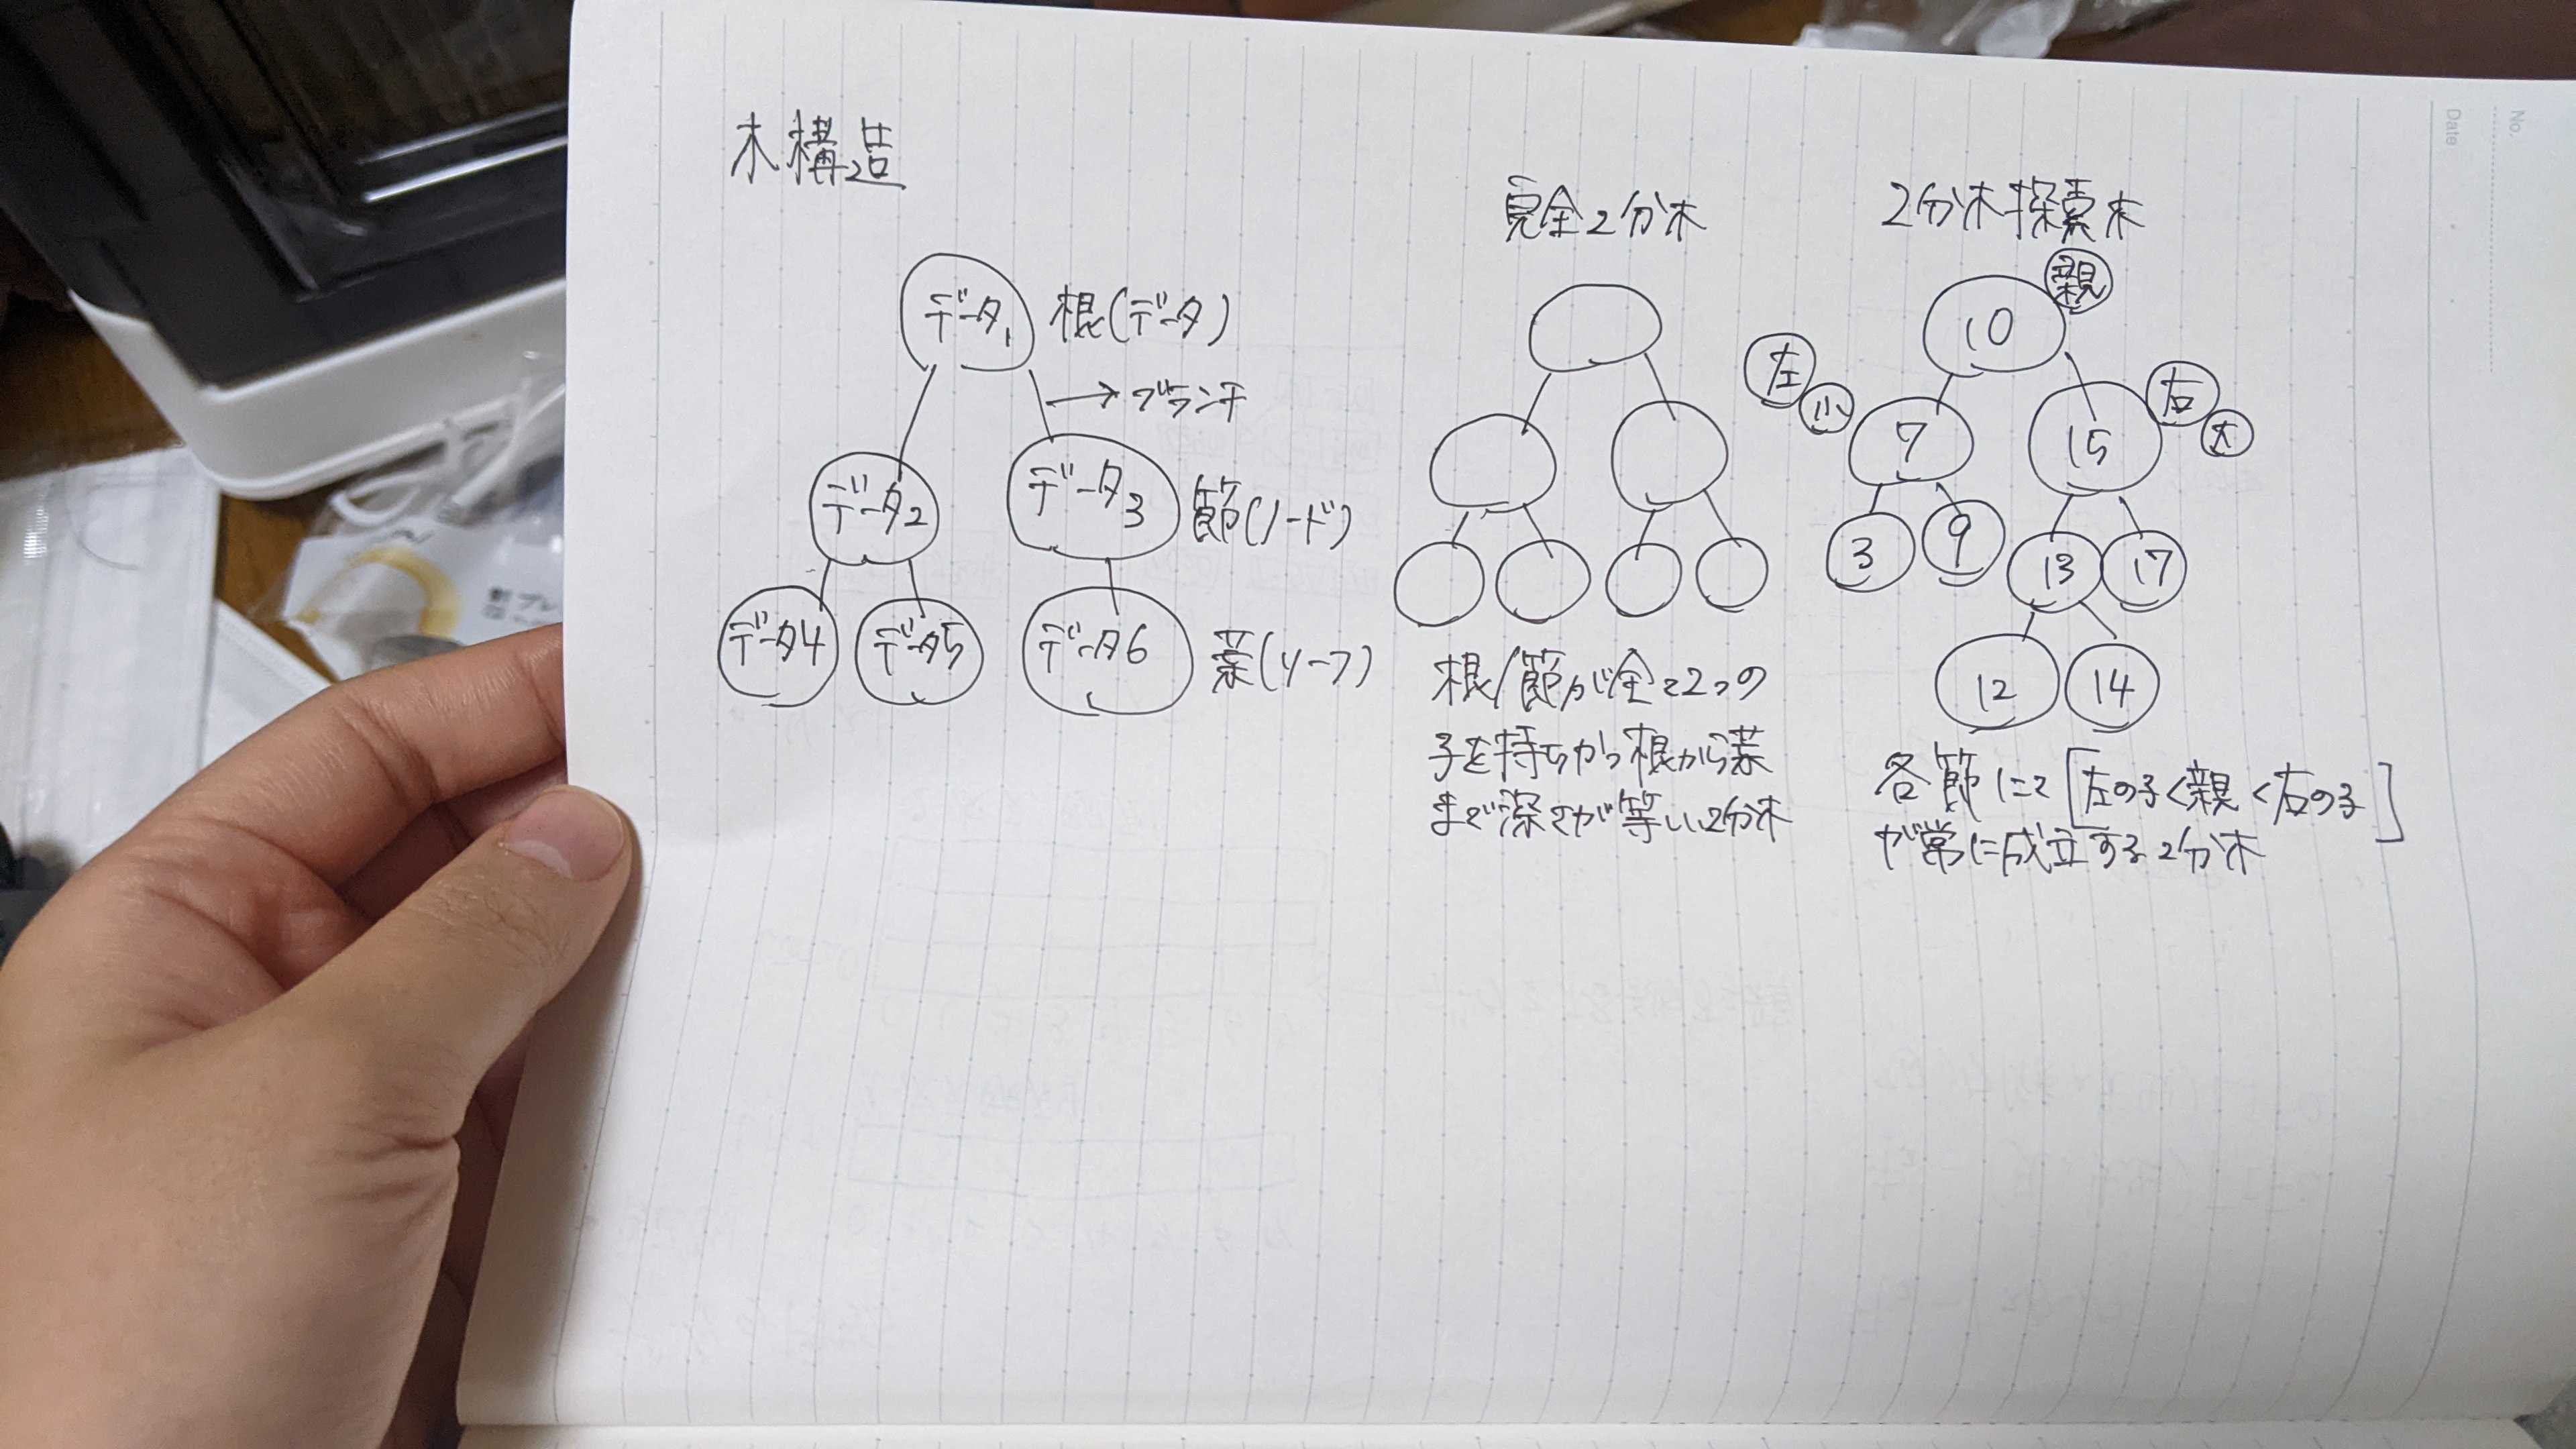 木構造
データ1
根(データ)
→ ブランチ
データ2
データ3
節(ノード)
データ4
データ5
データ6
葉(リーフ)
完全2分木
根/節が全て2つの
子を持ちかつ根から葉
まで深さが等しい2分木
2分木探索木
親
10
左
小
右
大
7
15
3
9
13
17
12
14
各節にて[左の子<親<右の子]
が常に成立する2分木
No.
Date